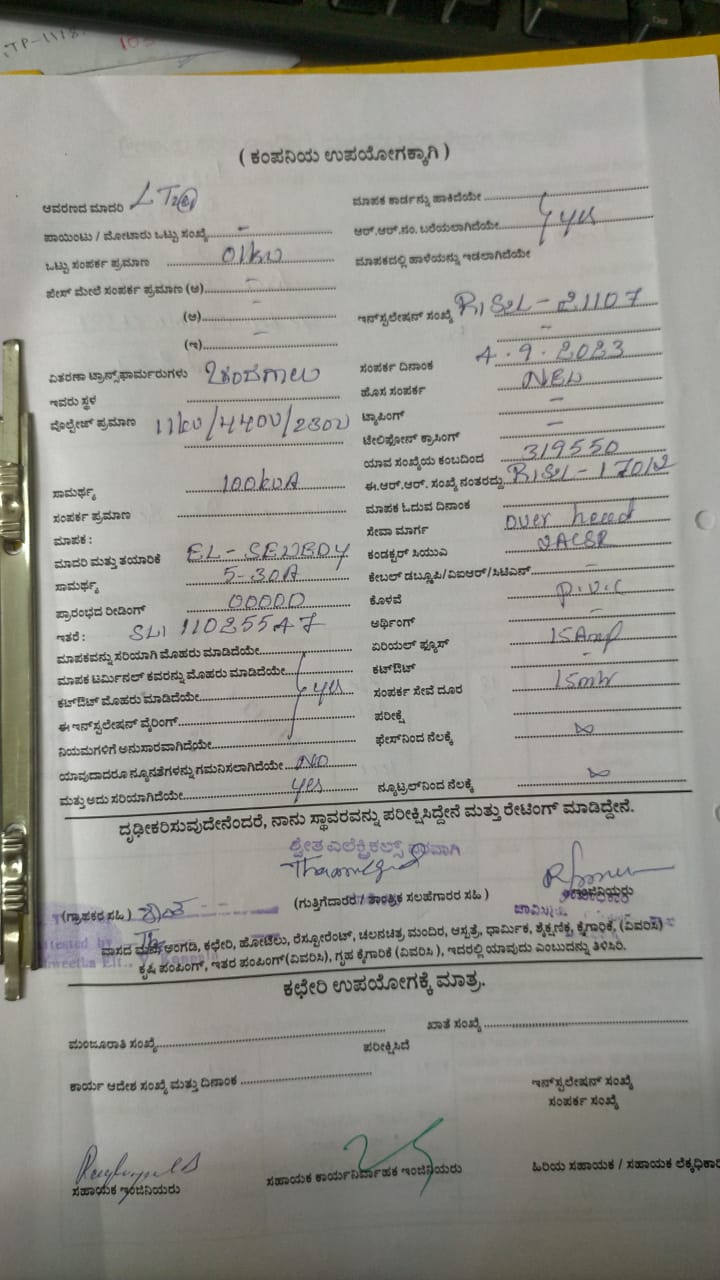 ( ಕಂಪನಿಯ ಉಪಯೋಗಕ್ಕಾಗಿ )
ಆವರಣದ ಮಾದರಿ LT2(a)
ಮಾಪಕ ಕಾರ್ಡನ್ನು ಹಾಕಿದೆಯೇ
ಪಾಯಿಂಟು / ಮೋಟಾರು ಒಟ್ಟು ಸಂಖ್ಯೆ -
ಆರ್.ಆರ್.ನಂ. ಬರೆಯಲಾಗಿದೆಯೇ yes
ಒಟ್ಟು ಸಂಪರ್ಕ ಪ್ರಮಾಣ 01kw
ಮಾಪಕದಲ್ಲಿ ಹಾಳೆಯನ್ನು ಇಡಲಾಗಿದೆಯೇ
ಫೇಸ್ ಮೇಲೆ ಸಂಪರ್ಕ ಪ್ರಮಾಣ (ಅ) -
(ಆ) -
ಇನ್‌ಸ್ಟಲೇಷನ್ ಸಂಖ್ಯೆ RJS2L-21107
(ಇ) -
-
ವಿತರಣಾ ಟ್ರಾನ್ಸ್‌ಫಾರ್ಮರುಗಳು
ಸಂಪರ್ಕ ದಿನಾಂಕ 4.9.2023
ಇವರು ಸ್ಥಳ
ಹೊಸ ಸಂಪರ್ಕ NEW
ವೊಲ್ಟೇಜ್ ಪ್ರಮಾಣ 11kv/440v/230v
ಟ್ಯಾಪಿಂಗ್ -
ಟೇಲಿಫೋನ್ ಕ್ರಾಸಿಂಗ್ -
ಯಾವ ಸಂಖ್ಯೆಯ ಕಂಬದಿಂದ 319550
ಸಾಮರ್ಥ್ಯ 100kvA
ಈ.ಆರ್.ಆರ್. ಸಂಖ್ಯೆ ನಂತರದ್ದು
ಸಂಪರ್ಕ ಪ್ರಮಾಣ
ಮಾಪಕ ಓದುವ ದಿನಾಂಕ
ಮಾಪಕ :
ಸೇವಾ ಮಾರ್ಗ over head
ಮಾದರಿ ಮತ್ತು ತಯಾರಿಕೆ
ಕಂಡಕ್ಟರ್ ಸಿಯುವಿ
ಸಾಮರ್ಥ್ಯ 5-30A
ಕೇಬಲ್ ಡಬ್ಲ್ಯೂಪಿ/ವಿಐಆರ್/ಸಿಟಿಎಸ್ -
ಪ್ರಾರಂಭದ ರೀಡಿಂಗ್ 00000
ಕೊಳವೆ p.v.c
ಇತರೆ : SL1 11025547
ಅರ್ಥಿಂಗ್ -
ಮಾಪಕವನ್ನು ಸರಿಯಾಗಿ ಮೊಹರು ಮಾಡಿದೆಯೇ
ಏರಿಯಲ್ ಫ್ಯೂಸ್ 15Amp
ಮಾಪಕ ಟರ್ಮಿನಲ್ ಕವರನ್ನು ಮೊಹರು ಮಾಡಿದೆಯೇ
ಕಟ್‌ಔಟ್ -
ಕಟ್‌ಔಟ್ ಮೊಹರು ಮಾಡಿದೆಯೇ yes
ಸಂಪರ್ಕ ಸೇವೆ ದೂರ 15mtr
ಈ ಇನ್‌ಸ್ಟಲೇಷನ್ ವೈರಿಂಗ್
ಪರೀಕ್ಷೆ
ನಿಯಮಗಳಿಗೆ ಅನುಸಾರವಾಗಿದೆಯೇ
ಫೇಸ್‌ನಿಂದ ನೆಲಕ್ಕೆ ∞
ಯಾವುದಾದರೂ ನ್ಯೂನತೆಗಳನ್ನು ಗಮನಿಸಲಾಗಿದೆಯೇ NO
ಮತ್ತು ಅದು ಸರಿಯಾಗಿದೆಯೇ yes
ನ್ಯೂಟ್ರಲ್‌ನಿಂದ ನೆಲಕ್ಕೆ ∞
ದೃಢೀಕರಿಸುವುದೇನೆಂದರೆ, ನಾನು ಸ್ಥಾವರವನ್ನು ಪರೀಕ್ಷಿಸಿದ್ದೇನೆ ಮತ್ತು ರೇಟಿಂಗ್ ಮಾಡಿದ್ದೇನೆ.
ಶ್ವೇತ ಎಲೆಕ್ಟ್ರಿಕಲ್ಸ್ ಪರವಾಗಿ
(ಗ್ರಾಹಕರ ಸಹಿ)
(ಗುತ್ತಿಗೆದಾರರ / ತಾಂತ್ರಿಕ ಸಲಹೆಗಾರರ ಸಹಿ )
ಇಂಜಿನಿಯರು
ವಾಸದ ಮನೆ, ಅಂಗಡಿ, ಕಛೇರಿ, ಹೋಟೆಲು, ರೆಸ್ಟೋರೆಂಟ್, ಚಲನಚಿತ್ರ ಮಂದಿರ, ಆಸ್ಪತ್ರೆ, ಧಾರ್ಮಿಕ, ಶೈಕ್ಷಣಿಕ, ಕೈಗಾರಿಕೆ, (ವಿವರಿಸಿ)
ಕೃಷಿ ಪಂಪಿಂಗ್, ಇತರ ಪಂಪಿಂಗ್(ವಿವರಿಸಿ), ಗೃಹ ಕೈಗಾರಿಕೆ (ವಿವರಿಸಿ ), ಇದರಲ್ಲಿ ಯಾವುದು ಎಂಬುದನ್ನು ತಿಳಿಸಿರಿ.
ಕಛೇರಿ ಉಪಯೋಗಕ್ಕೆ ಮಾತ್ರ.
ಮಂಜೂರಾತಿ ಸಂಖ್ಯೆ
ಖಾತೆ ಸಂಖ್ಯೆ
ಪರೀಕ್ಷಿಸಿದೆ
ಕಾರ್ಯ ಆದೇಶ ಸಂಖ್ಯೆ ಮತ್ತು ದಿನಾಂಕ
ಇನ್‌ಸ್ಟಲೇಷನ್ ಸಂಖ್ಯೆ
ಸಂಪರ್ಕ ಸಂಖ್ಯೆ
ಸಹಾಯಕ ಇಂಜಿನಿಯರು
ಸಹಾಯಕ ಕಾರ್ಯನಿರ್ವಾಹಕ ಇಂಜಿನಿಯರು
ಹಿರಿಯ ಸಹಾಯಕ / ಸಹಾಯಕ